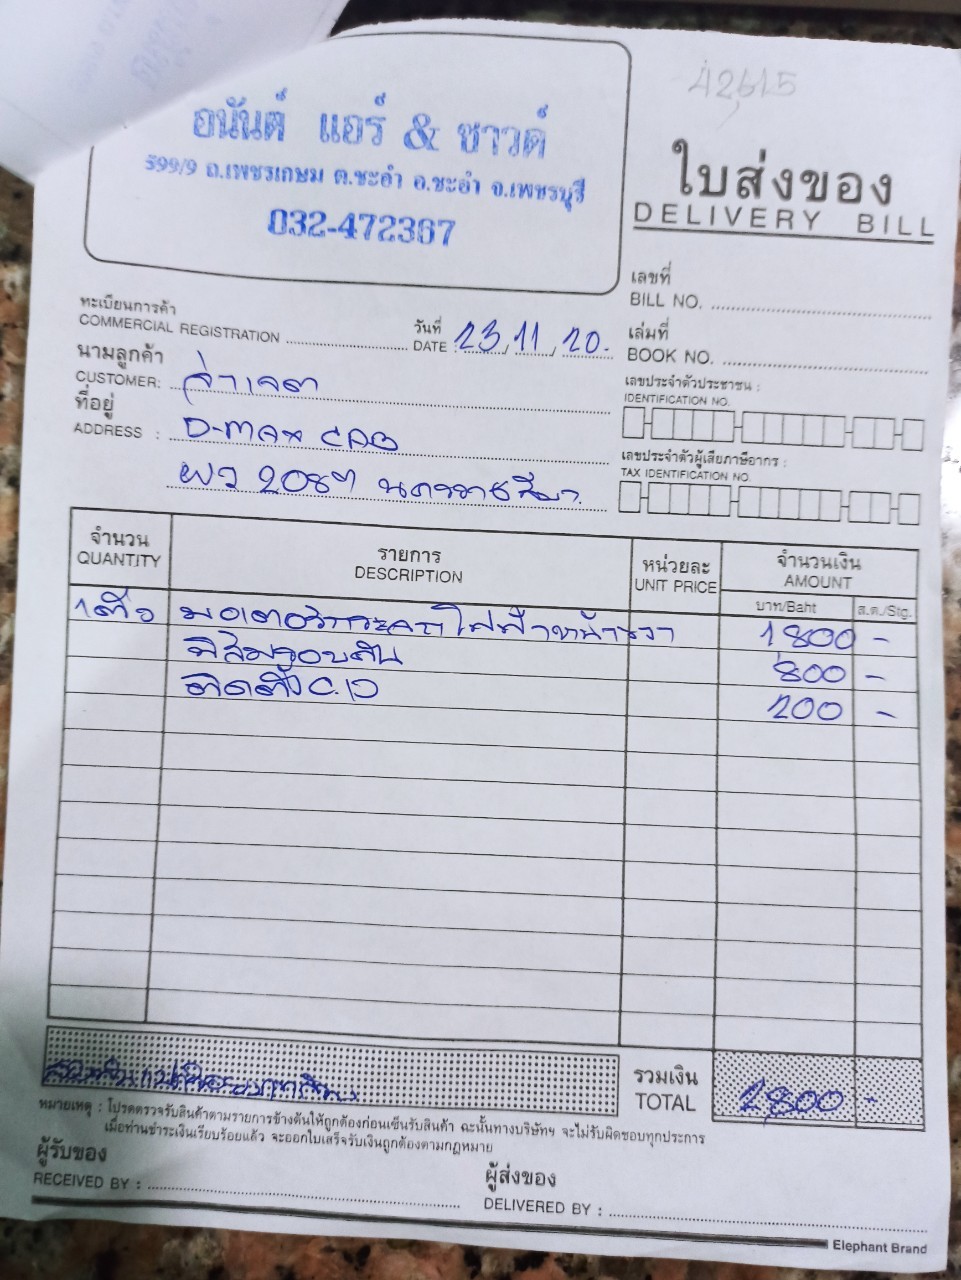 42,615
อนันต์ แอร์ & ซาวด์
599/9 ถ.เพชรเกษม ต.ชะอำ อ.ชะอำ จ.เพชรบุรี
032-472367
ใบส่งของ
DELIVERY BILL
เลขที่
BILL NO.
ทะเบียนการค้า
COMMERCIAL REGISTRATION
วันที่
DATE 23,11,20.
เล่มที่
BOOK NO.
นามลูกค้า
CUSTOMER:
ที่อยู่
ADDRESS : D-max CAB
ผว 2087 นครราชสีมา
เลขประจำตัวประชาชน :
IDENTIFICATION NO.
เลขประจำตัวผู้เสียภาษีอากร :
TAX IDENTIFICATION NO.
จำนวน
QUANTITY
รายการ
DESCRIPTION
หน่วยละ
UNIT PRICE
จำนวนเงิน
AMOUNT
บาท/Baht ส.ต./Stg.
1 ตัว มอเตอร์กระจกไฟฟ้าหน้าขวา 1800 -
ฟิล์มรอบคัน 800 -
ติดตั้ง 200 -
รวมเงิน
TOTAL 2,800 -
หมายเหตุ : โปรดตรวจรับสินค้าตามรายการข้างต้นให้ถูกต้องก่อนเซ็นรับสินค้า ฉะนั้นทางบริษัทฯ จะไม่รับผิดชอบทุกประการ
เมื่อท่านชำระเงินเรียบร้อยแล้ว จะออกใบเสร็จรับเงินถูกต้องตามกฎหมาย
ผู้รับของ
RECEIVED BY :
ผู้ส่งของ
DELIVERED BY :
Elephant Brand